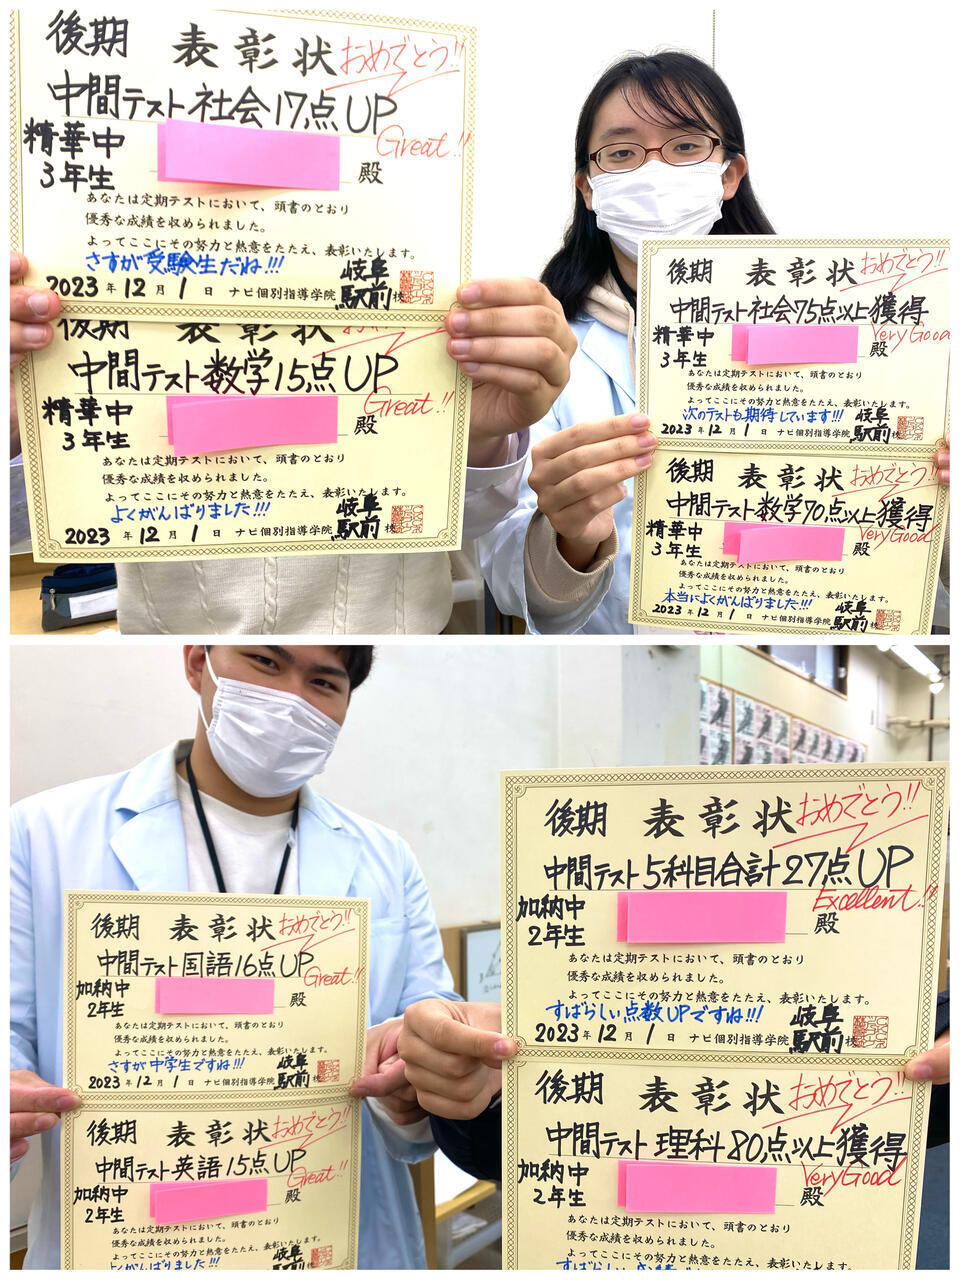 後期 表彰状 おめでとう!!
中間テスト社会17点UP
Great!!
精華中
3年生
殿
あなたは定期テストにおいて、頭書のとおり
優秀な成績を収められました。
よってここにその努力と熱意をたたえ、表彰いたします。
さすが受験生だね!!!
2023年12月1日 ナビ個別指導学院 岐阜駅前校
後期 表彰状
中間テスト数学15点UP
Great!!
精華中
3年生
殿
あなたは定期テストにおいて、頭書のとおり
優秀な成績を収められました。
よってここにその努力と熱意をたたえ、表彰いたします。
よくがんばりました!!!
2023年12月1日 ナビ個別指導学院 岐阜駅前校
後期 表彰状 おめでとう!!
中間テスト社会75点以上獲得
Very Good
精華中
3年生
殿
あなたは定期テストにおいて、頭書のとおり
優秀な成績を収められました。
よってここにその努力と熱意をたたえ、表彰いたします。
次のテストも期待しています!!!
2023年12月1日 ナビ個別指導学院 岐阜駅前
後期 表彰状 おめでとう!!
中間テスト数学70点以上獲得
Very Good
精華中
3年生
殿
あなたは定期テストにおいて、頭書のとおり
優秀な成績を収められました。
よってここにその努力と熱意をたたえ、表彰いたします。
本当によくがんばりました!!!
2023年12月1日 ナビ個別指導学院 岐阜駅前校
後期 表彰状 おめでとう!!
中間テスト国語16点UP
Great!!
加納中
2年生
殿
あなたは定期テストにおいて、頭書のとおり
優秀な成績を収められました。
よってここにその努力と熱意をたたえ、表彰いたします。
さすが中学生ですね!!!
2023年12月1日 ナビ個別指導学院 岐阜駅前校
後期 表彰状 おめでとう!!
中間テスト英語15点UP
Great!!
加納中
2年生
殿
あなたは定期テストにおいて、頭書のとおり
優秀な成績を収められました。
よってここにその努力と熱意をたたえ、表彰いたします。
よくがんばりました!!!
岐阜駅前
後期 表彰状 おめでとう!!
中間テスト5科目合計27点UP
Excellent!!
加納中
2年生
殿
あなたは定期テストにおいて、頭書のとおり
優秀な成績を収められました。
よってここにその努力と熱意をたたえ、表彰いたします。
すばらしい点数UPですね!!!
2023年12月1日 ナビ個別指導学院 岐阜駅前校
後期 表彰状 おめでとう!!
中間テスト理科80点以上獲得
Very Good
加納中
2年生
殿
あなたは定期テストにおいて、頭書のとおり
優秀な成績を収められました。
よってここにその努力と熱意をたたえ、表彰いたします。
すばらしい